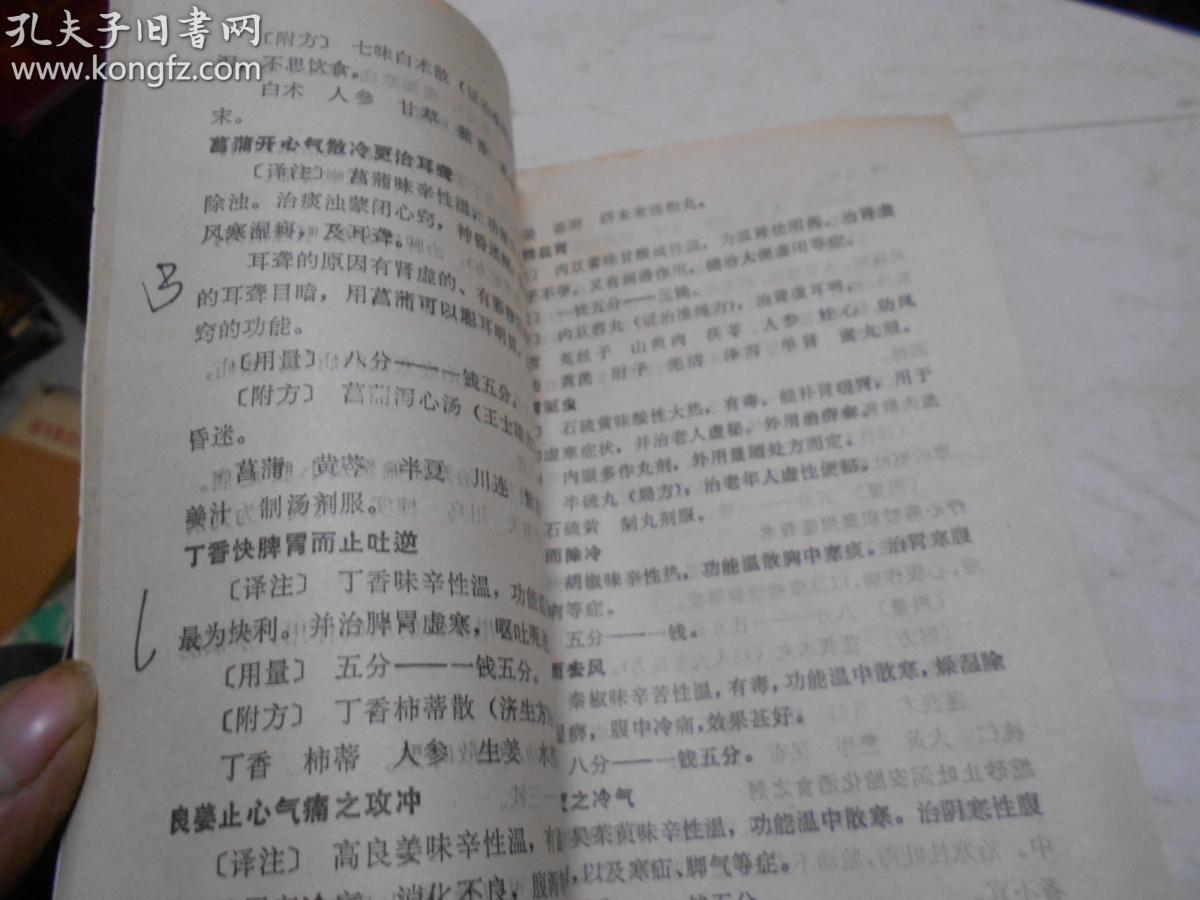 孔夫子旧书网
www.kongfz.com
〔附方〕 七味白术散（证治
不思饮食。
白术 人参 甘草 藿香
末。
菖蒲开心气散冷更治耳聋
〔译注〕 菖蒲味辛性温，功能
除浊。治痰浊蒙闭心窍，神昏迷
风寒湿痹，及耳聋。
耳聋的原因有肾虚的、有邪
的耳聋目暗，用菖蒲可以聪耳明目，
窍的功能。
〔用量〕 八分———一钱五分。
〔附方〕 菖蒲泻心汤（王士雄
昏迷。
菖蒲 黄芩 半夏 川连
姜汁 制汤剂服。
丁香快脾胃而止吐逆
〔译注〕 丁香味辛性温，功能温
最为快利。并治脾胃虚寒，呕吐呃
〔用量〕 五分———一钱五分。
〔附方〕 丁香柿蒂散（济生方）
丁香 柿蒂 人参 生姜 水
良姜止心气痛之攻冲
〔译注〕 高良姜味辛性温，有
消化不良，腹
香附 研末米汤和丸。
精益肾
肉苁蓉味甘酸咸性温，为温肾壮阳药。治肾虚
不孕。又有润滑作用，能治大便虚闭等症。
一钱五分———三钱。
肉苁蓉丸（证治准绳方），治肾虚耳鸣。
菟丝子 山萸肉 茯苓 人参 桂心 防风
黄芪 附子 羌活 泽泻 羊肾 蜜丸服。
驱虫
石硫黄味酸性大热，有毒。能补肾暖胃，用于
虚寒症状，并治老人虚秘。外用治疥癣。
内服多作丸剂，外用量随处方而定。
半硫丸（局方），治老年人虚性便秘。
石硫黄 制丸剂服。
而除冷
胡椒味辛性热，功能温散胸中寒痰。治胃寒腹
等症。
五分———一钱。
而去风
秦椒味辛苦性温，有毒，功能温中散寒，燥湿除
痹，腹中冷痛，效果甚好。
八分———一钱五分。
之冷气
吴茱萸味辛性温，功能温中散寒。治阴寒性腹
，以及寒疝、脚气等症。
五分———一钱五分。